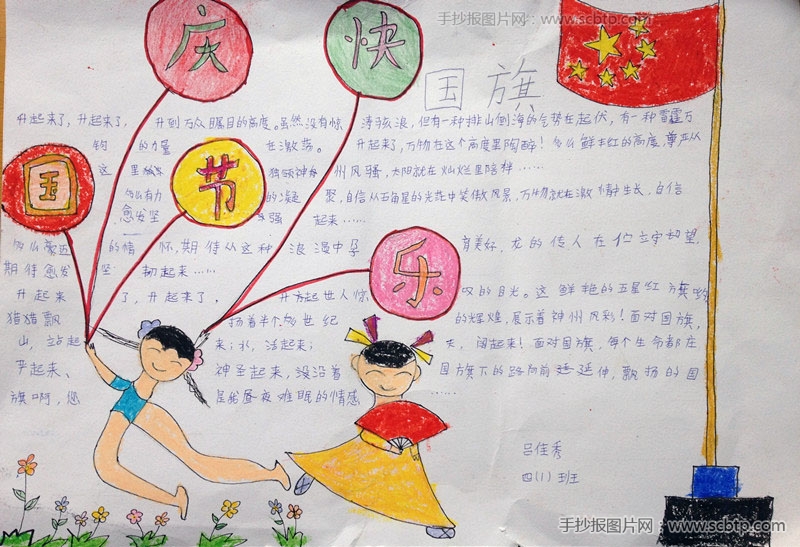 手抄报图片网：www.scbtp.com
庆
快
国
节
乐
国旗
升起来了，升起来了，升到万众瞩目的高度。虽然没有惊涛骇浪，但有一种排山倒海的气势在起伏，有一种雷霆万
钧的力量在激荡。升起来，万物在这个高度里陶醉！多么鲜红的高度，尊严从
这里独领神州风骚，太阳就在灿烂里陪伴……
多么有力的凝聚，自信从五角星的光芒中笑傲风景，万物就在激情中生长，自信
愈发坚强起来……
多么豪迈的情怀，期待从这种浪漫中孕育美好，龙的传人在伫守中盼望，
期待愈发坚韧起来……
升起来了，升起来了，升起世人惊叹的目光。这鲜艳的五星红旗哟
猎猎飘扬着半个多世纪的辉煌，展示着神州风彩！面对国旗，
山，站起来；水，活起来；天，阔起来！面对国旗，每个生命都庄
严起来、神圣起来，没沿着国旗下的路向前延伸，飘扬的国
旗啊，您是我昼夜难眠的情感……
吕佳秀
四(1)班
手抄报图片网：www.scbtp.com